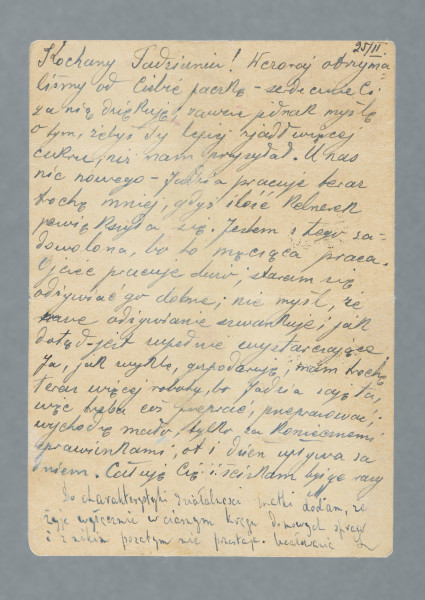 25/II
Kochany Tadziuniu! Wczoraj otrzyma-
liśmy od Ciebie paczkę - serdecznie Ci
za nią dziękuję, zawsze jednak myślę
o tym, żebyś Ty lepiej zjadł więcej
cukru, niż nam przysyłał. U nas
nic nowego - Jadzia pracuje teraz
trochę mniej, gdyż ilość kelnerek
powiększyła się. Jestem z tego za-
dowolona, bo to męcząca praca.
Ojciec pracuje dużo, staram się
odżywiać go dobrze, nie myśl, że
nasze odżywianie szwankuje, jak
dotąd jest zupełnie wystarczające
Ja, jak zwykle, gospodaruję, mam trochę
teraz więcej roboty, bo Jadzia zajęta,
więc trzeba coś przeprać, przeprasować,
wychodzę mało, tylko za koniecznemi
sprawunkami, ot i dzień upływa za
dniem. Całuję Cię i ściskam tysiąc razy
Do charakterystyki działalności matki dodam, że
żyje wyłącznie w ciasnym kręgu domowych spraw
i z nikim poza tym nie